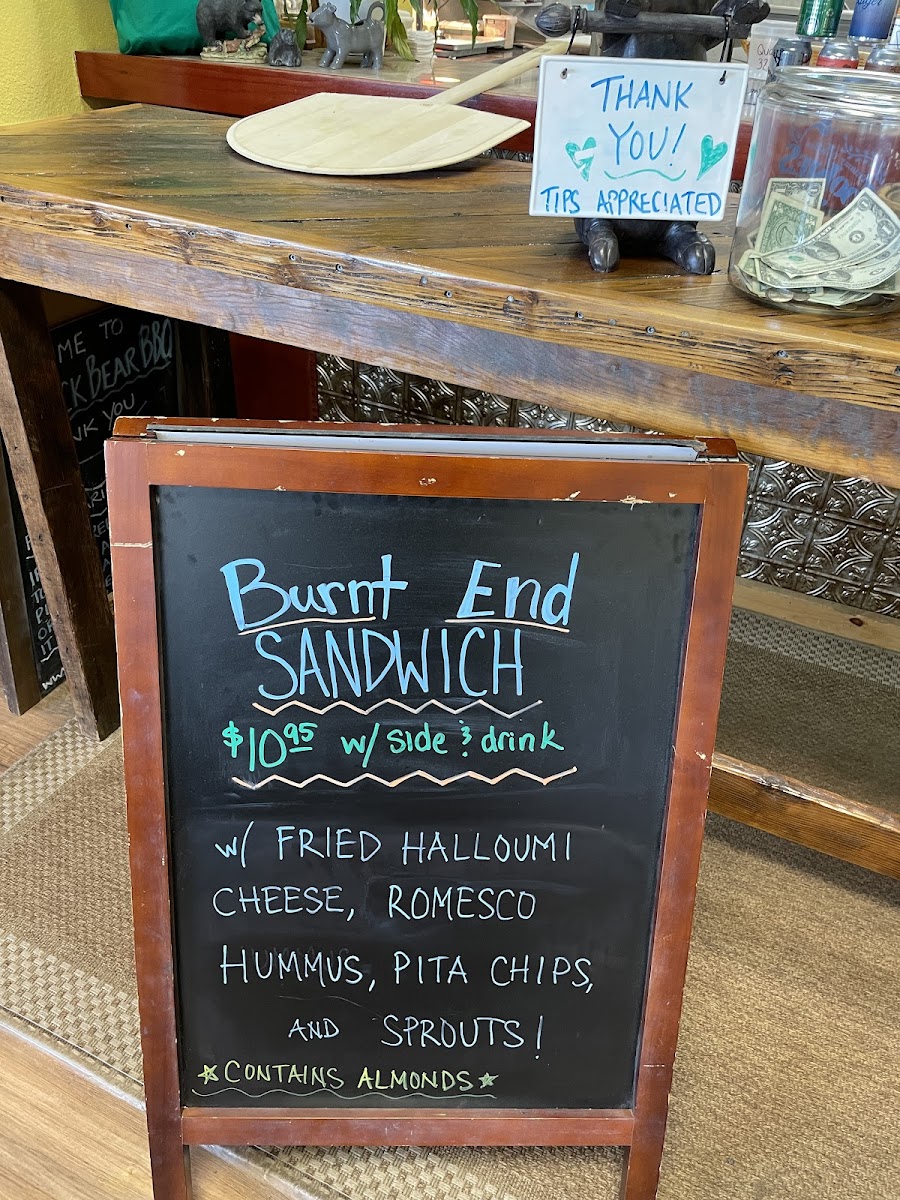 THANK
YOU!
TIPS APPRECIATED
ME TO
CK BEAR BBQ
NK YOU
Burnt End
SANDWICH
$10.95 w/ side & drink
w/ FRIED HALLOUMI
CHEESE, ROMESCO
HUMMUS, PITA CHIPS,
AND SPROUTS!
☆CONTAINS ALMONDS☆